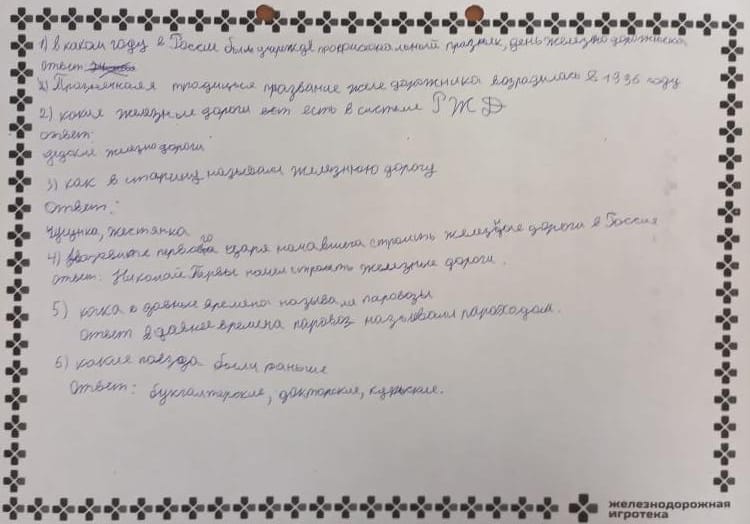 1) в каком году в России был учрежде профисиональный празник, день железно дорожника
ответ
2) Празничная традиция празвание желе дорожника возрадилась в 1936 году
2) какие железные дороги есть в системе РЖД
ответ:
децкие железно дороги
3) как в старину называли железную дорогу
Ответ:
чугунка, жестянка
4) первого царя начавшего строить железные дороги в России
ответ: Николай Первы начел строить железные дороги.
5) как в давные времена называли паровозы
ответ в давнее времена паровоз называли пароходом.
6) какие поезда были раньше
Ответ: бухгалтерские, дакторские,
железнодорожная
игротека